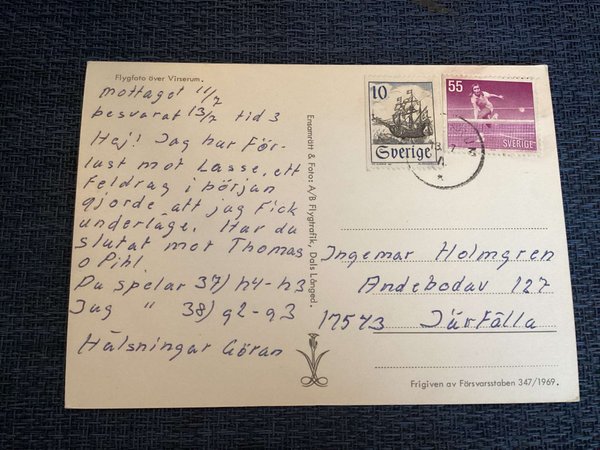 Flygfoto över Virserum.
mottaget 11/7
besvarat 13/7 tid 3
Hej! Jag har för-
lust mot Lasse, ett
feldrag i början
gjorde att jag fick
underläge. Har du
slutat mot Thomas
o Pihl
Du spelar 37) h4-h3
Jag " 38) g2-g3
Hälsningar Göran
Ensamrätt & Foto: A/B Flygtrafik, Dals Långed.
10
Sverige
55
SVERIGE
13. 7
Ingemar Holmgren
Andebodav 127
17543 Järfälla
Frigiven av Försvarsstaben 347/1969.